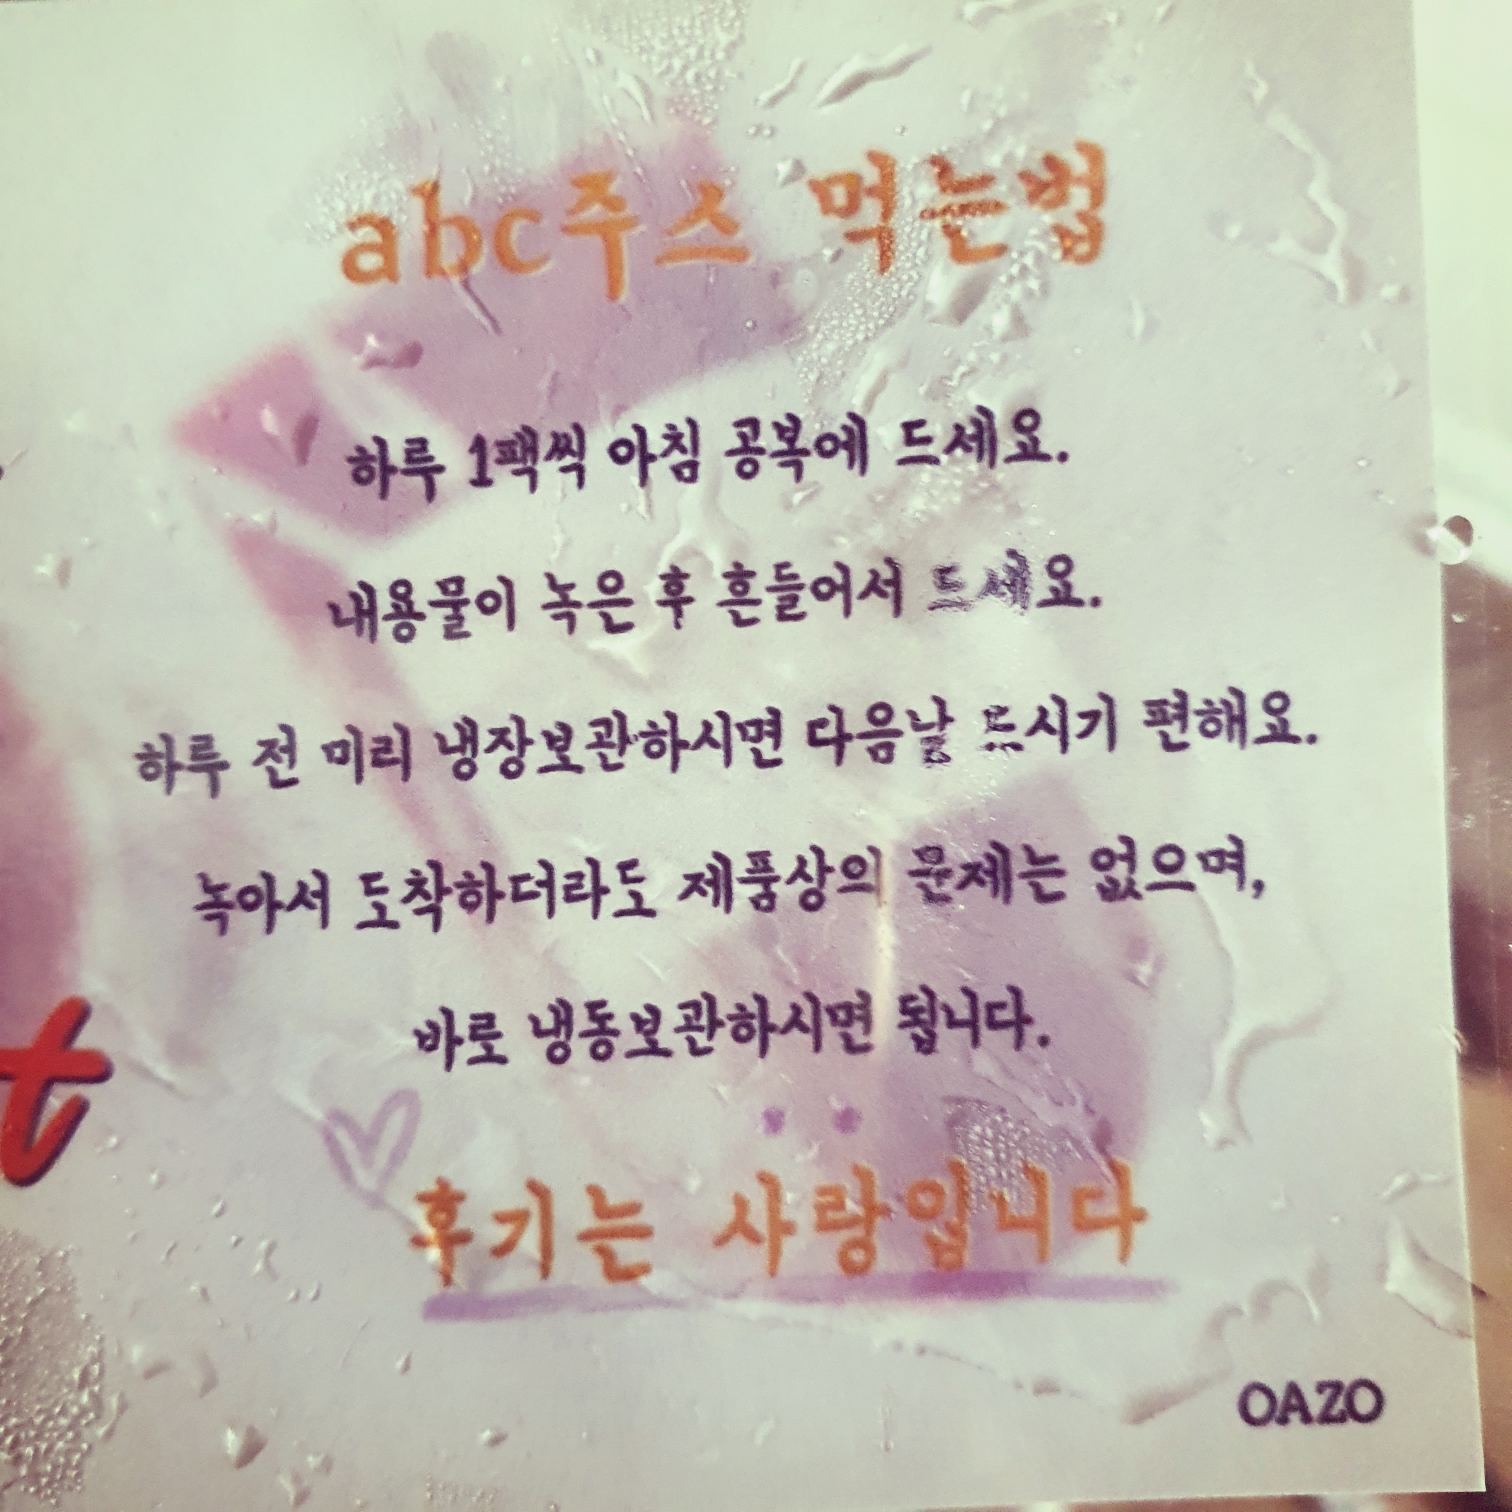 abc주스 먹는법
하루 1팩씩 아침 공복에 드세요.
내용물이 녹은 후 흔들어서 드세요.
하루 전 미리 냉장보관하시면 다음날 드시기 편해요.
녹아서 도착하더라도 제품상의 문제는 없으며,
바로 냉동보관하시면 됩니다.
t
후기는 사랑입니다
OAZO